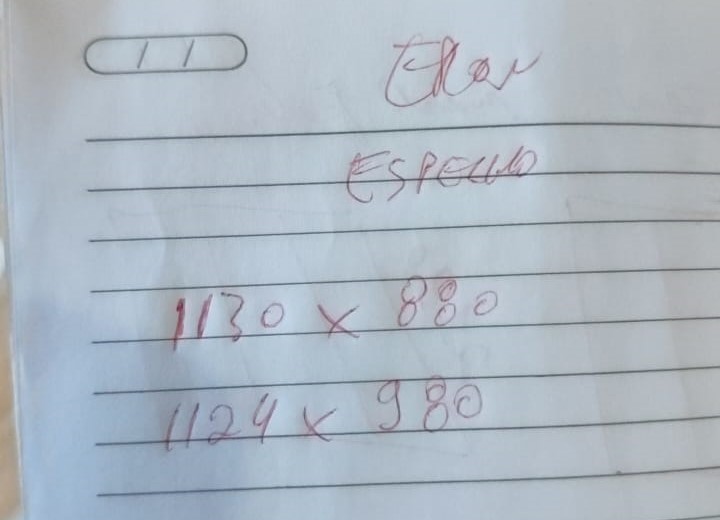 ESPELHO
1130 x 880
1124 x 980